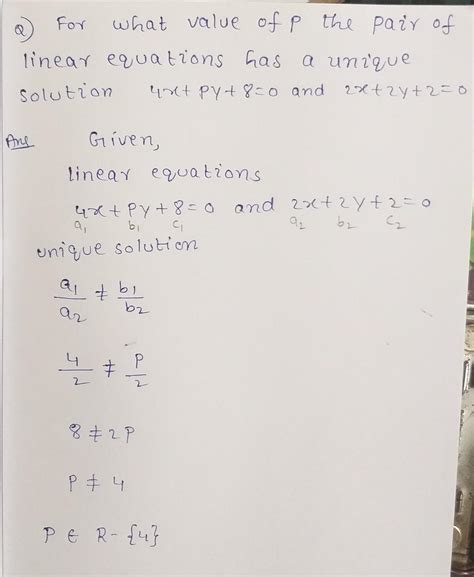 Q) For what value of P the pair of
linear equations has a unique
solution 4x+Py+8=0 and 2x+2y+2=0
Ans Given,
linear equations
4x+Py+8=0 and 2x+2y+2=0
a₁ b₁ c₁ a₂ b₂ c₂
unique solution
a₁/a₂ ≠ b₁/b₂
4/2 ≠ P/2
8 ≠ 2P
P ≠ 4
P ∈ R-{4}